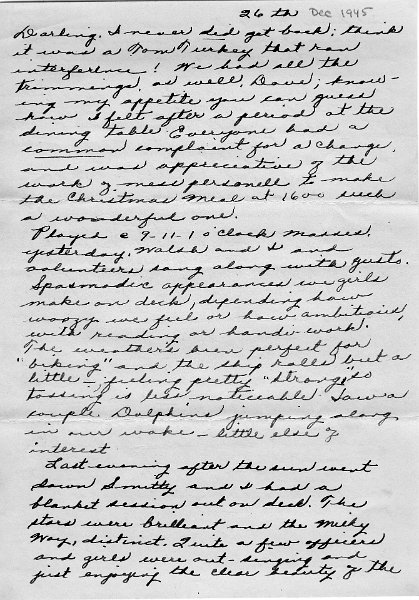 26th Dec 1945
Darling, I never did get back; think
it was a Tom Turkey that ran
interference! We had all the
trimmings, as well, Dave; know-
ing my appetite you can guess
how I felt after a period at the
dining table. Everyone had a
common complaint for a change,
and was appreciative of the
work of mess personell to make
the Christmas Meal at 1600 such
a wonderful one.
Played @ 9-11-1 o'clock Masses,
yesterday, Walsh and I and
volunteers sang along with gusto.
Spasmodic appearances we girls
make on deck, depending how
woozy we feel or how ambitious,
with reading or handi-work.
The weather's been perfect for
"biking" and the ship rolls but a
little - feeling pretty "strong" so
tossing is less noticeable. Saw a
couple Dolphins jumping along
in our wake - little else of
interest.
Last evening after the sun went
down Smitty and I had a
blanket session out on deck. The
stars were brilliant and the Milky
Way, distinct. Quite a few officers
and girls were out - singing and
just enjoying the clear beauty of the